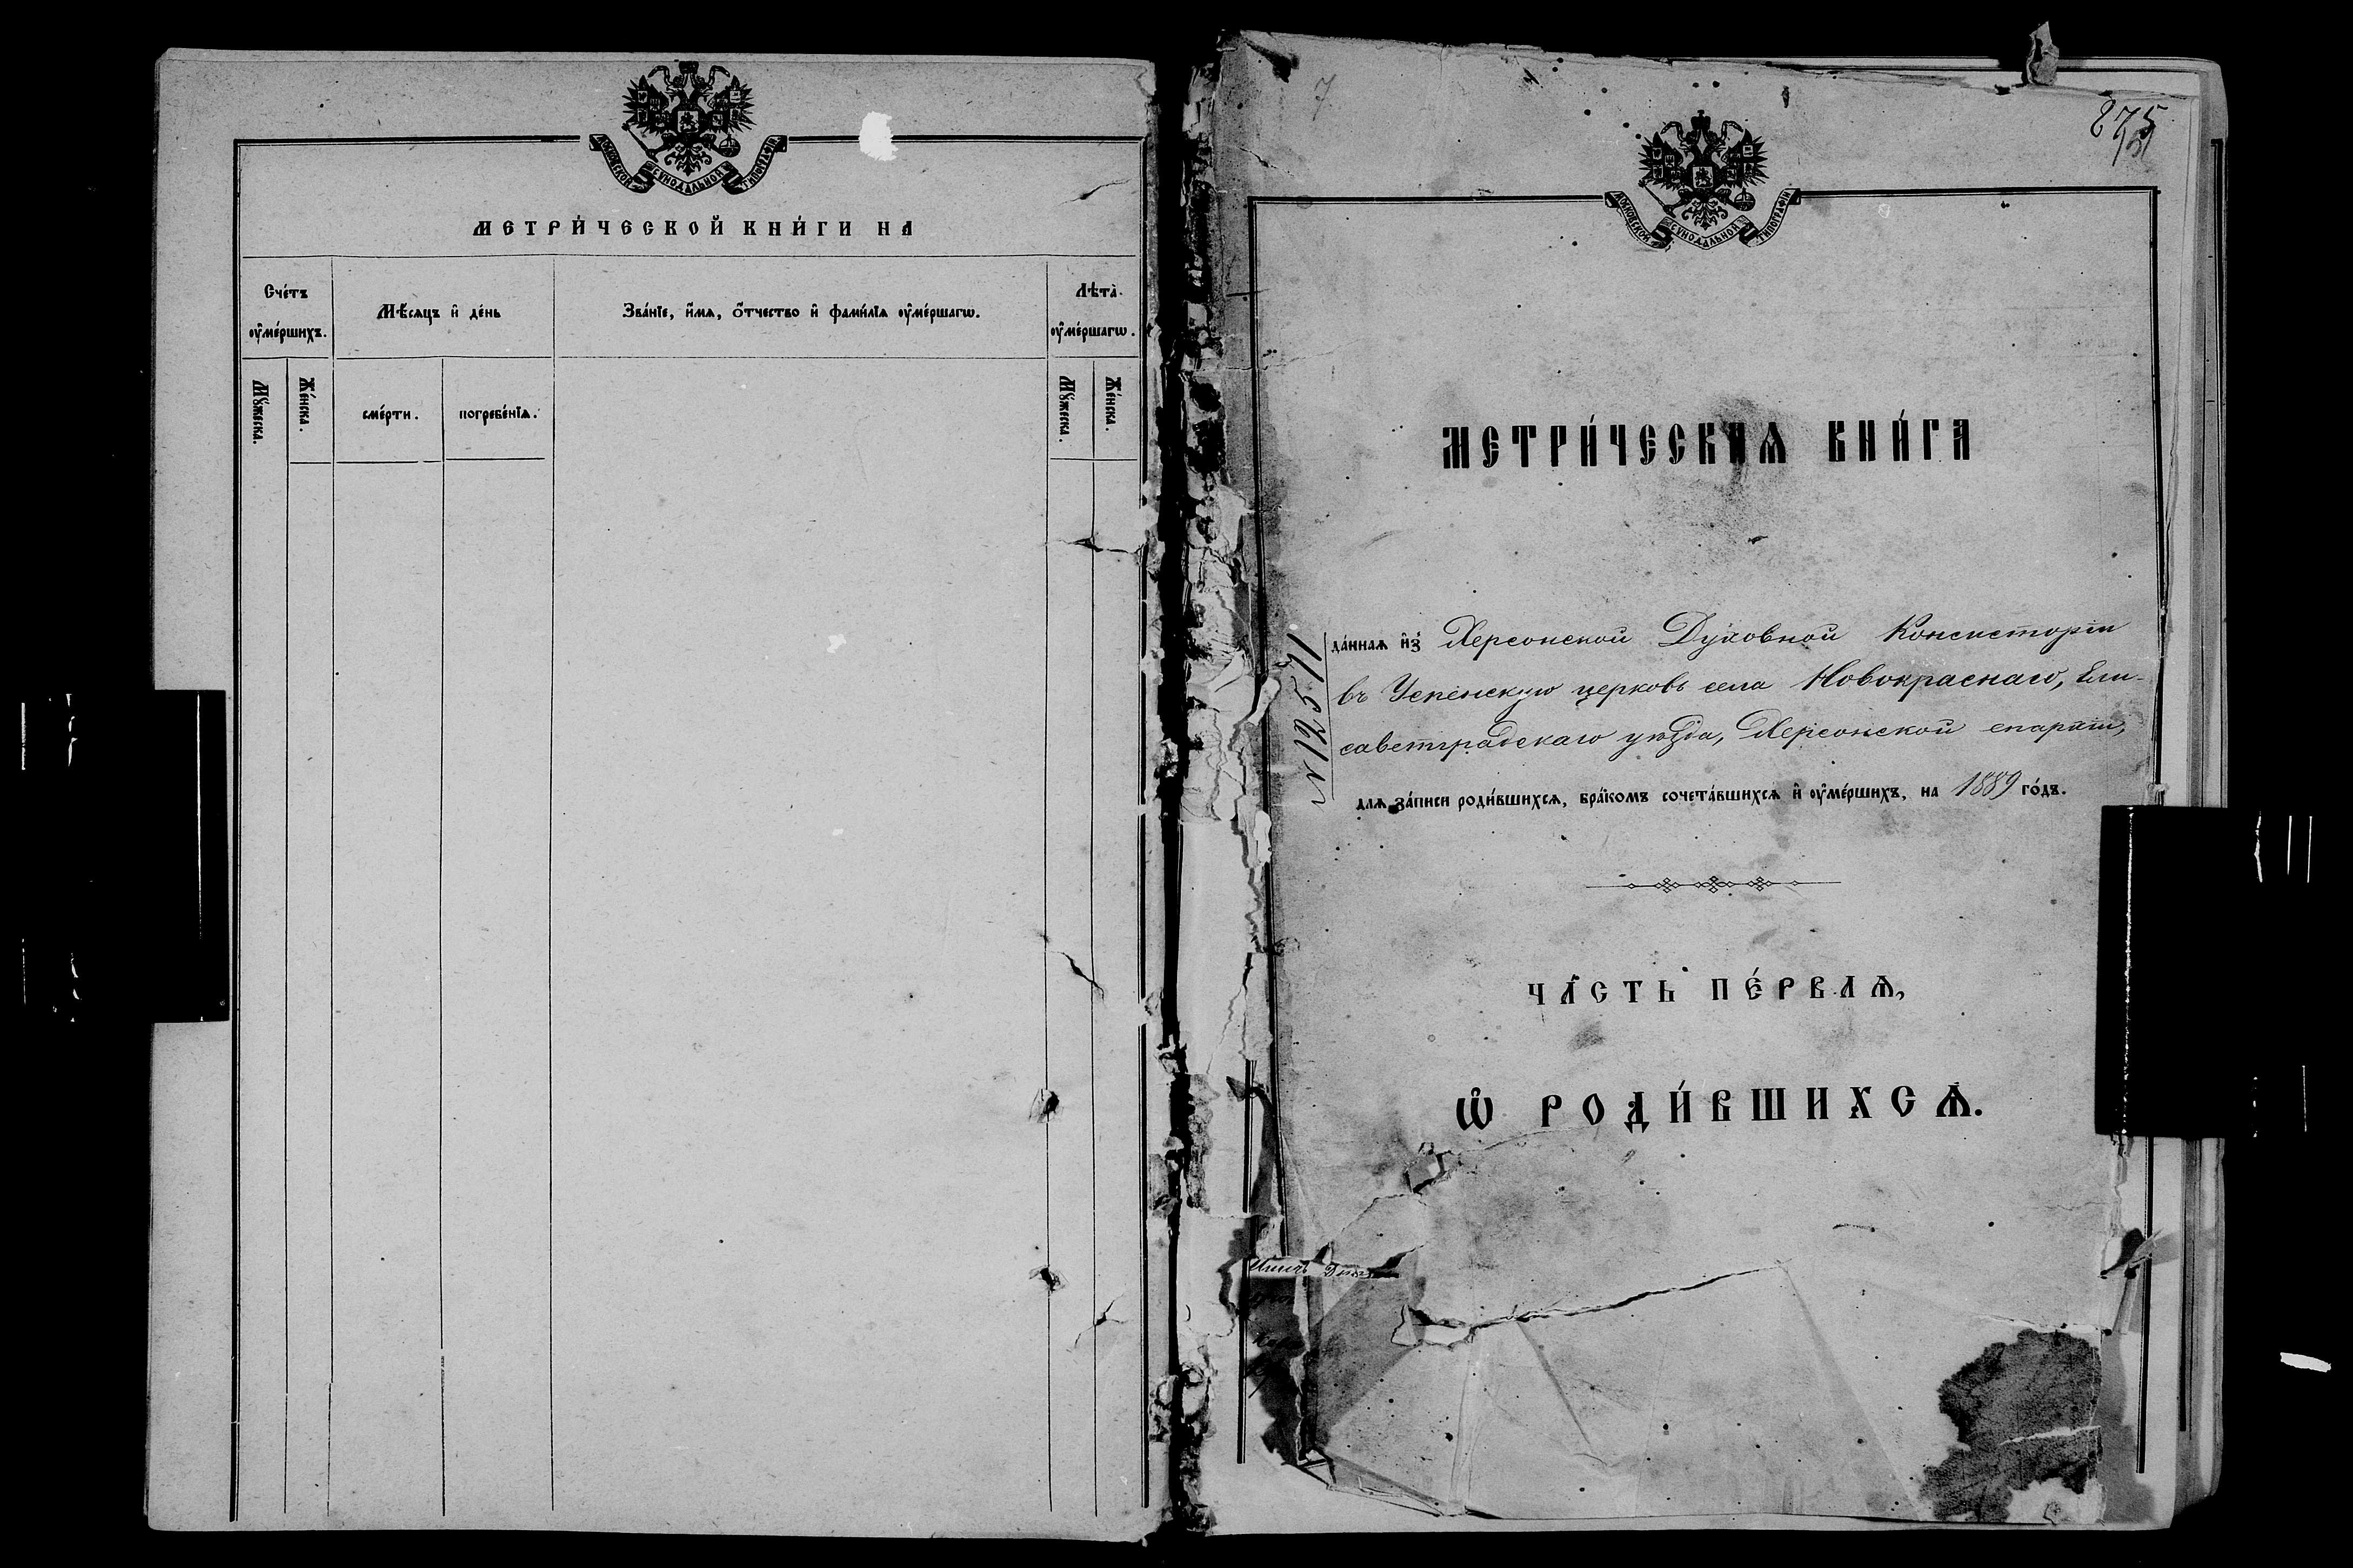 МОСКОВСКОЙ СѴНОДАЛЬНОЙ ТИПОГРАФІИ
МЕТРИ́ЧЕСКОЙ КНИ́ГИ НА
Сче́тъ ᲂу҆ме́ршихъ.
Мѣ́сяцъ и҆ де́нь
Зва́нїе, и҆́мѧ, ѻ҆́тчество и҆ фами́лїѧ ᲂу҆ме́ршагѡ.
Лѣта̀ ᲂу҆ме́ршагѡ.
Мꙋ́жеска.
Же́нска.
сме́рти.
погребе́нїѧ.
Мꙋ́жеска.
Же́нска.
7
275
МОСКОВСКОЙ СѴНОДАЛЬНОЙ ТИПОГРАФІИ
МЕТРИ́ЧЕСКАѦ КНИ́ГА
№ 12571
да́ннаѧ и҆з̾ Херсонской Духовной Консисторіи
въ Успенскую церковь села Новокраснаго, Ели-
саветградскаго уѣзда, Херсонской епархіи,
длѧ за́писи роди́вшихсѧ, бра́комъ сочета́вшихсѧ и҆ ᲂу҆ме́ршихъ, на 1889 го́дъ.
ЧА́СТЬ ПЕ́РВАѦ,
Ѡ҆ РОДИ́ВШИХСѦ.